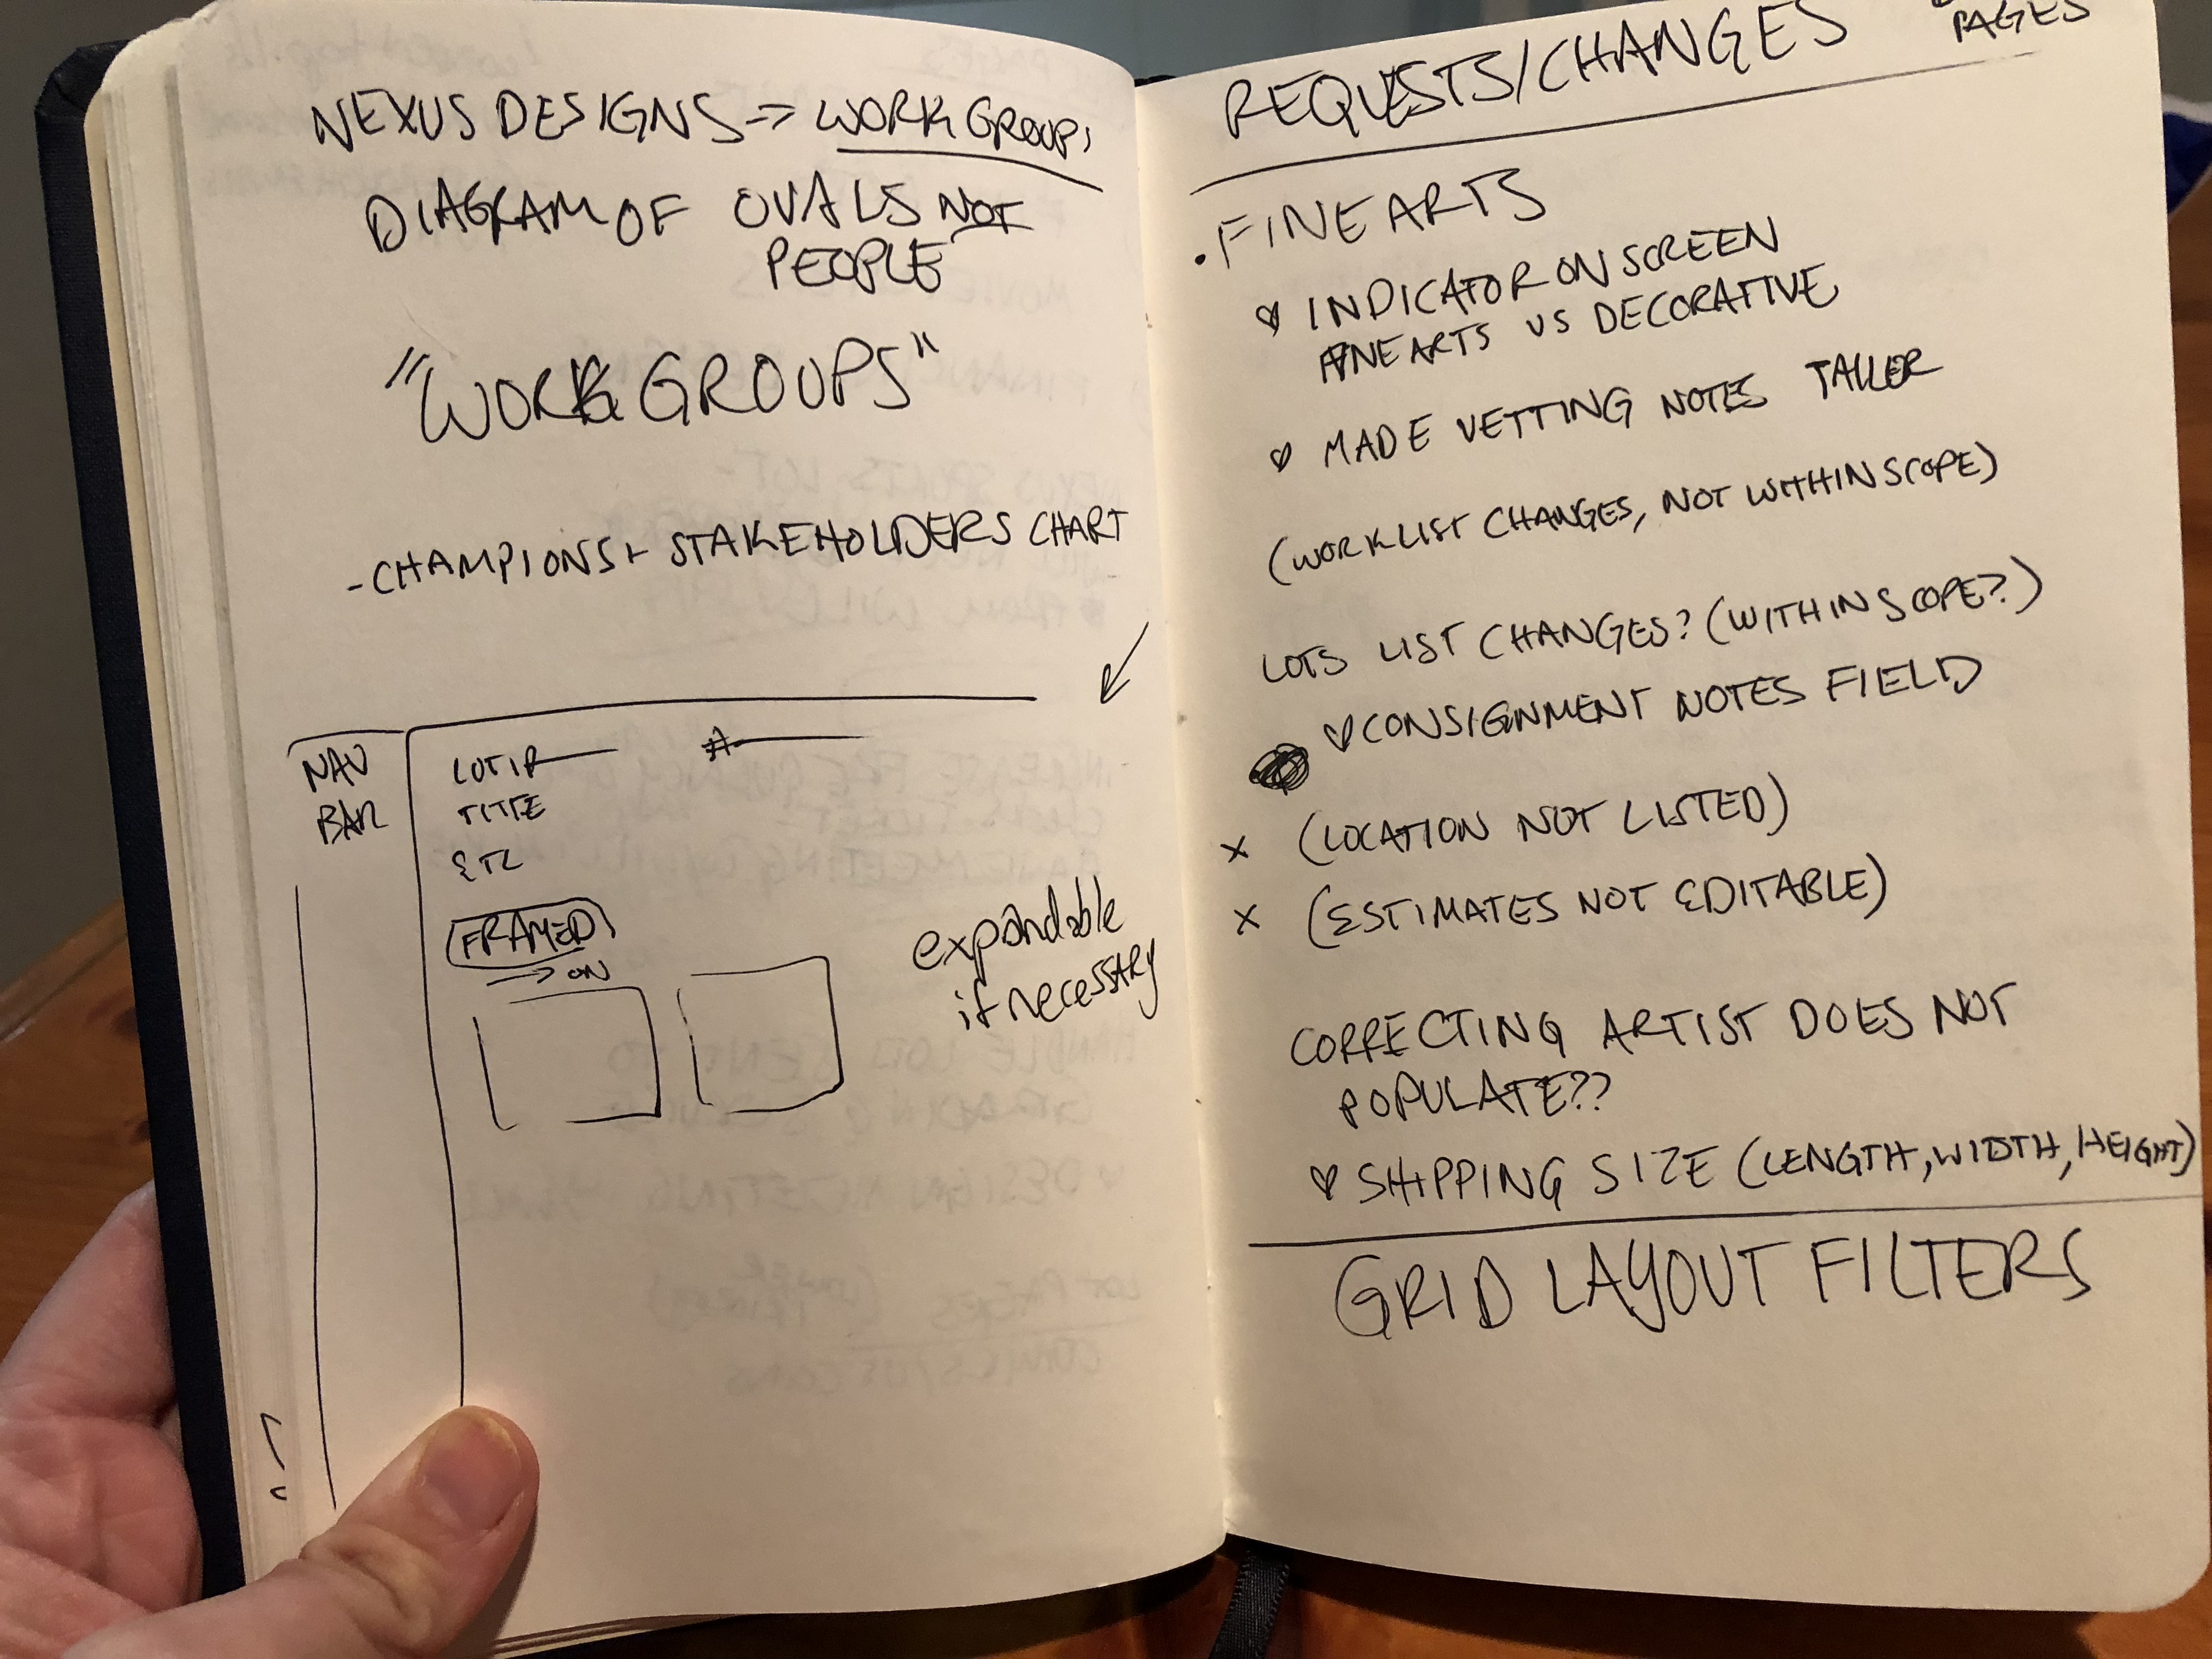 NEXUS DESIGNS → WORK GROUPS
DIAGRAM OF OVALS NOT
PEOPLE
"WORK GROUPS"
- CHAMPIONS + STAKEHOLDERS CHART
NAV
BAR
LOT ID
#
TITLE
ETC
FRAMED
→ ON
expandable
if necessary
REQUESTS/CHANGES
PAGES
• FINE ARTS
♡ INDICATOR ON SCREEN
FINE ARTS VS DECORATIVE
♡ MADE VETTING NOTES TALLER
(WORKLIST CHANGES, NOT WITHIN SCOPE)
LOTS LIST CHANGES? (WITHIN SCOPE?)
♡ CONSIGNMENT NOTES FIELD
X (LOCATION NOT LISTED)
X (ESTIMATES NOT EDITABLE)
CORRECTING ARTIST DOES NOT
POPULATE??
♡ SHIPPING SIZE (LENGTH, WIDTH, HEIGHT)
GRID LAYOUT FILTERS